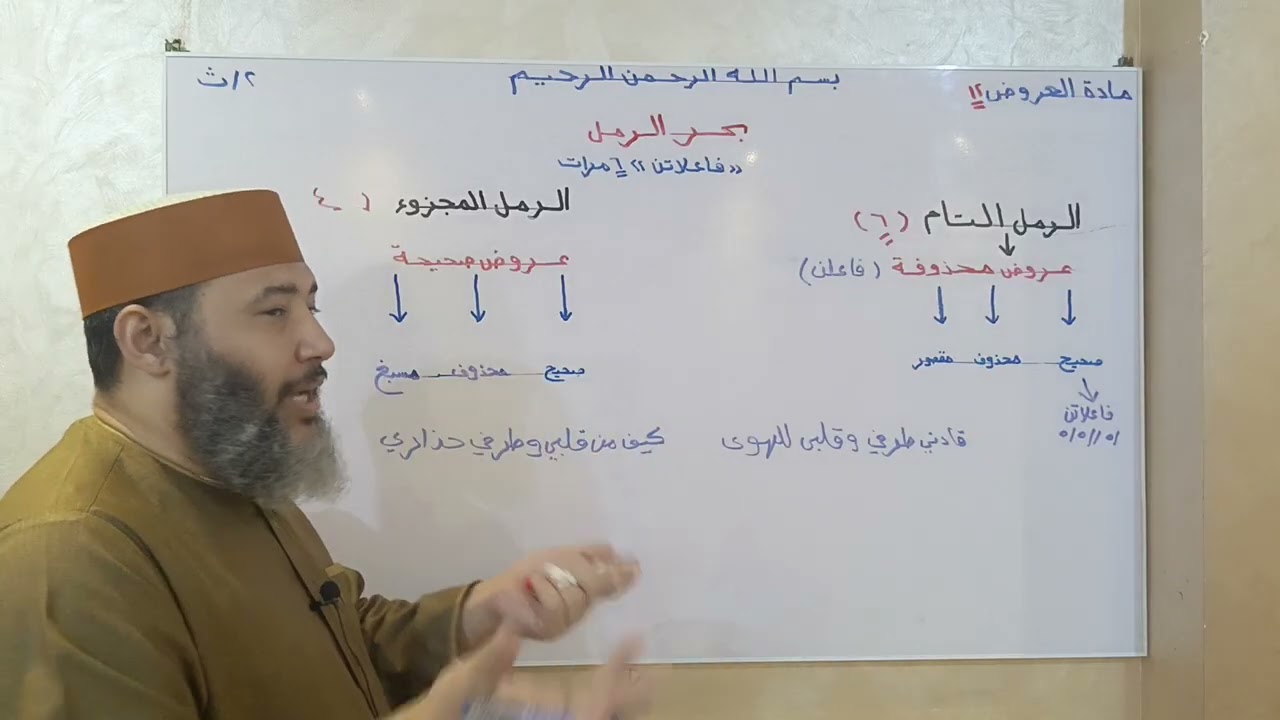 مادة العروض ١٢
بسم الله الرحمن الرحيم
٢/ث
بحر الرمل
"فاعلاتن" ٦ مرات
الرمل التام (٦)
عروض محذوفة (فاعلن)
صحيح محذوف مقصور
فاعلاتن
/٥//٥/٥
الرمل المجزوء (٤
عروض صحيحة
صحيح محذوف مسبغ
قادني طرفي وقلبى للهوى كيف من قلبي وطرفي حذاري